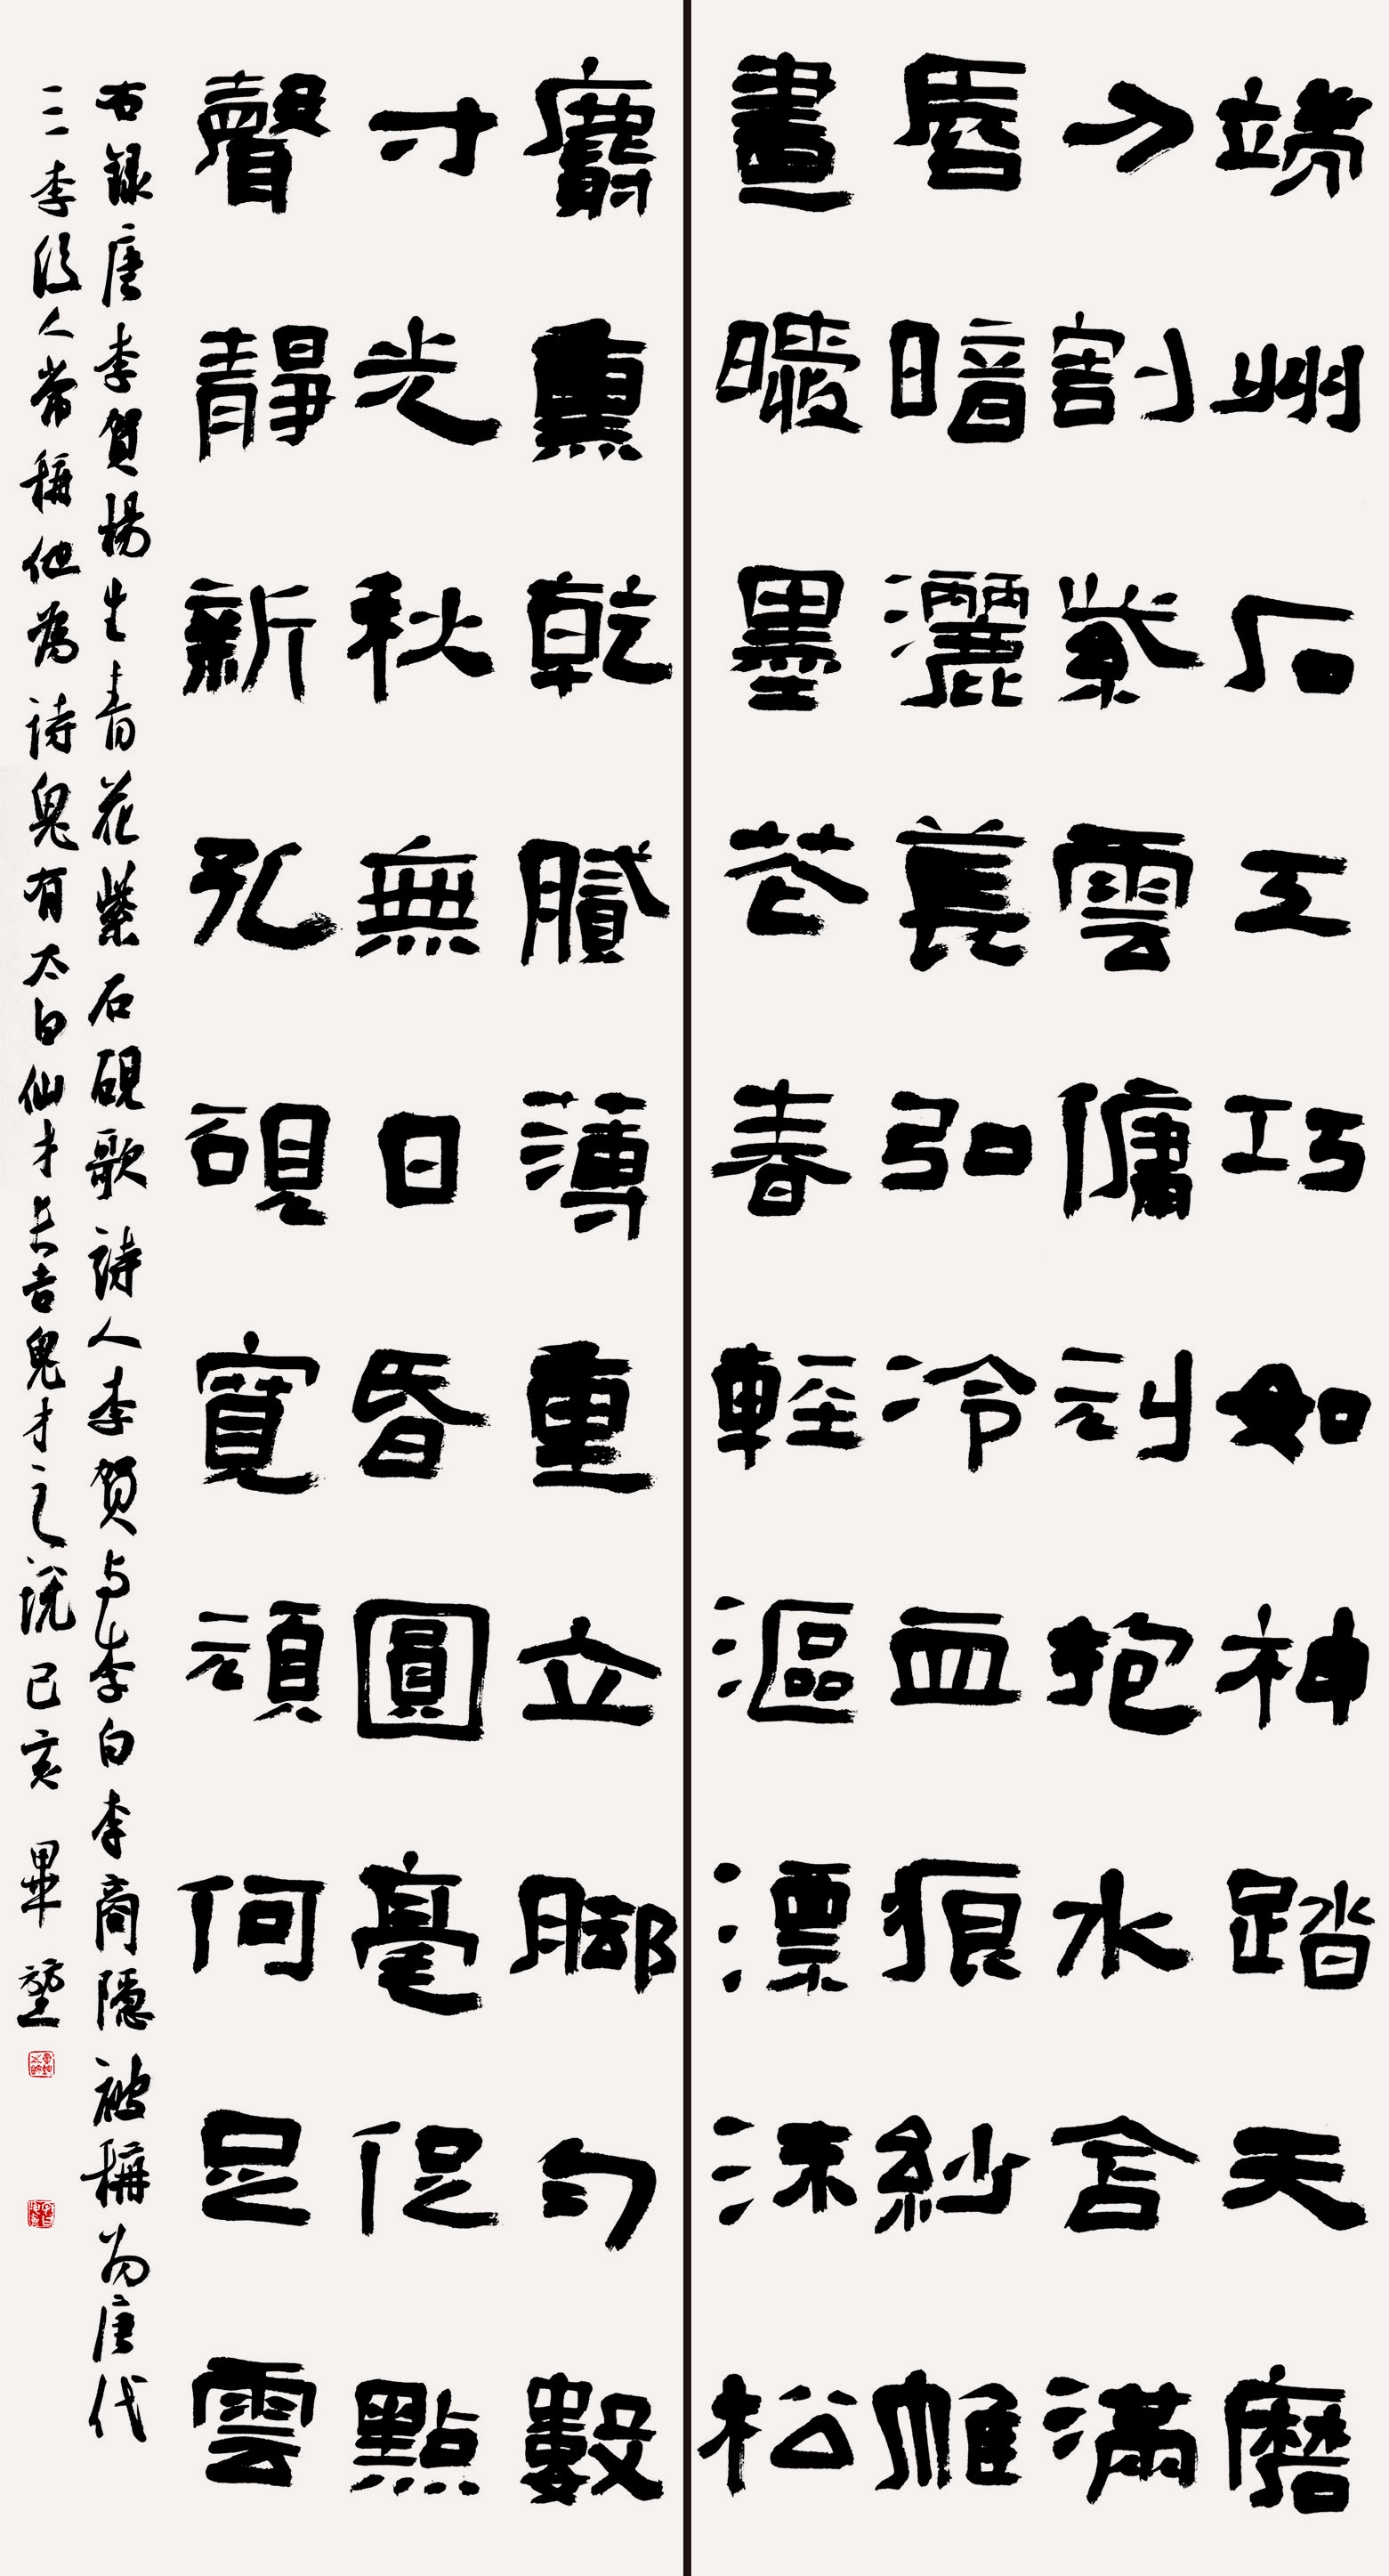 端州石工巧如神踏天磨
刀割紫雲傭刓抱水含滿
唇暗灑萇弘冷血痕紗帷
晝暖墨花春輕漚漂沫松
麝熏乾膩薄重立脚勻數
寸光秋無日昏圓毫促點
聲靜新孔硯寬頑何足雲
右錄唐李賀楊生青花紫石硯歌詩人李賀与李白李商隱被稱为唐代
三李後人常稱他為詩鬼有太白仙才長吉鬼才之說己亥 畢